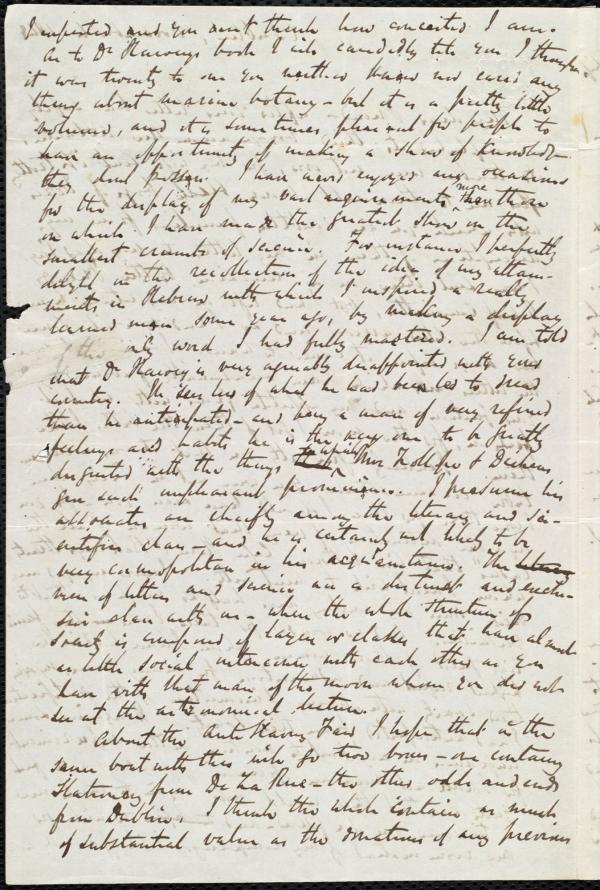 I expected and you won't think how conceited I am.
As to Dr Harvey's book I will candidly tell you I thought
it was twenty to one you neither knew nor cared any
thing about marine botany - but it is a pretty little
volume, and it is sometimes pleasant for people to
have an opportunity of making a show of knowledge
they don't possess. I have never enjoyed any occasions
for the display of my vast acquirements more than those
on which I have made the greatest show on the
smallest crumbs of science. For instance I perfectly
delight in the recollection of the idea of my attain-
ments in Hebrew with which I inspired a really
learned man some years ago, by making a display
of the only word I had fully mastered. I am told
that Dr Harvey is very agreeably disappointed with your
country. He sees less of what he had been led to dread
than he anticipated - and being a man of very refined
feelings and habits he is the very one to be greatly
disgusted with the things to which Mrs Trollope & Dickens
gave such unpleasant prominence. I presume his
associates are chiefly among the literary and sci-
entific class - and he is certainly not likely to be
very cosmopolitan in his acquaintance. The
men of letters and science are a distinct and exclu-
sive class with us - when the whole structure of
society is composed of layers or classes that have almost
as little social intercourse with each other as you
have with that man of the moon whom you did not
see at the astronomical lecture.
About the Anti Slavery Fair I hope that in the
same boat with this will go two boxes - one containing
Stationery from De La Rue - the other odds and ends
from Dublin. I think the whole contain as much
of substantial value as the donations of any previous